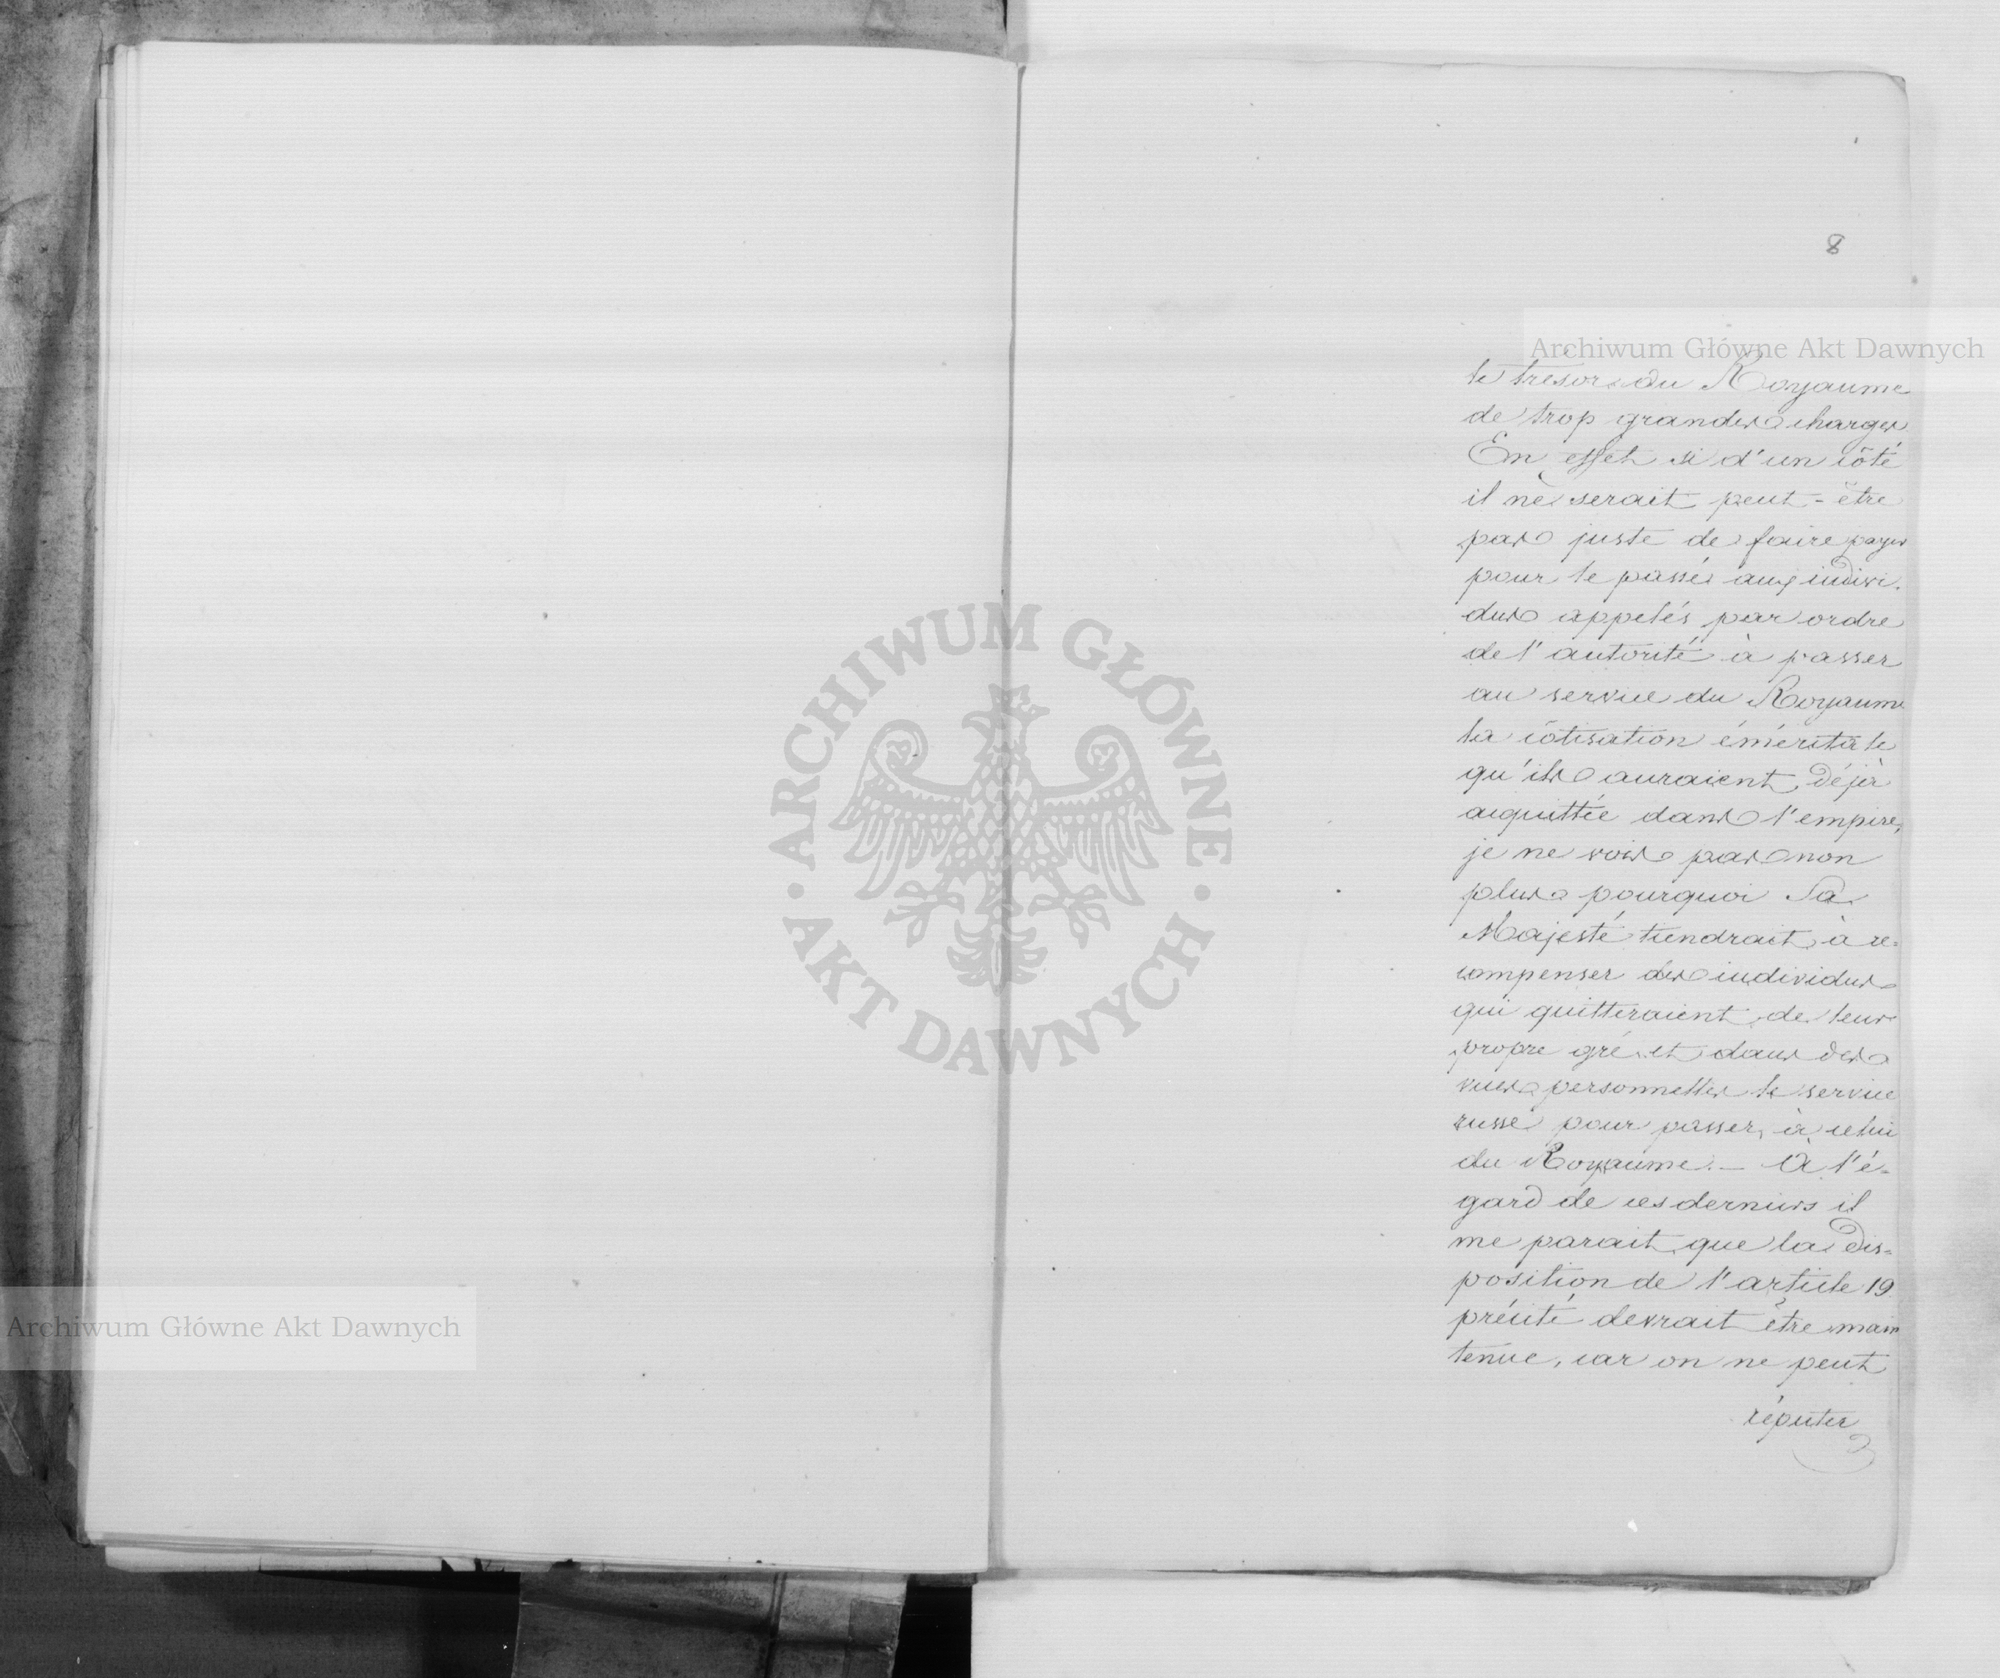 8
Archiwum Główne Akt Dawnych
le trésor du Royaume
de trop grandes charges
En effet si d'un côté
il ne serait peut-être
pas juste de faire payer
pour le passé aux indivi-
dus appelés par ordre
de l'autorité à passer
au service du Royaume
la côtisation éméritale
qu'ils auraient déjà
acquittée dans l'empire,
je ne vois pas non
plus pourquoi Sa
Majesté tiendrait à ré-
compenser des individus
qui quitteraient de leur
propre gré et dans des
vues personnelles le service
russe pour passer à celui
du Royaume. — A l'é-
gard de ces derniers il
me parait que la dis-
position de l'article 19
précité devrait être main
tenue, car on ne peut
réputer
ARCHIWUM GŁÓWNE
AKT DAWNYCH
Archiwum Główne Akt Dawnych